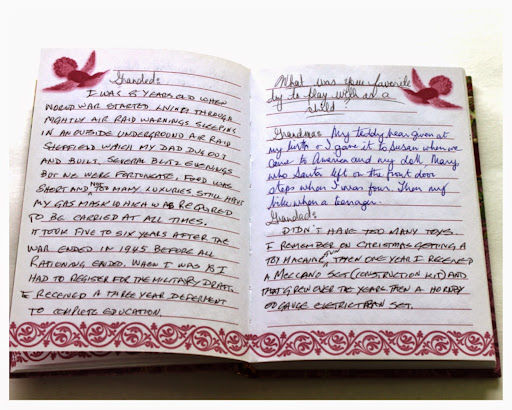 Grandad:
I WAS 8 YEARS OLD WHEN
WORLD WAR STARTED LIVING THROUGH
NIGHTLY AIR RAID WARNINGS SLEEPING
IN AN OUTSIDE UNDERGROUND AIR RAID
SHEFFIELD WHICH MY DAD DUG OUT
AND BUILT. SEVERAL BLITZ EVENINGS
BUT WE WERE FORTUNATE, FOOD WAS
SHORT AND NOT TOO MANY LUXURIES. STILL HAVE
MY GAS MASK WHICH WAS REQUIRED
TO BE CARRIED AT ALL TIMES.
IT TOOK FIVE TO SIX YEARS AFTER THE
WAR ENDED IN 1945 BEFORE ALL
RATIONING ENDED. WHEN I WAS 18 I
HAD TO REGISTER FOR THE MILITARY DRAFT.
I RECEIVED A THREE YEAR DEFERMENT
TO COMPLETE EDUCATION.
What was your favorite
toy to play with as a
child?
Grandma: My teddy bear given at
my birth & I gave it to Susan when we
came to America and my doll, Mary,
who Santa left on the front door
steps when I was four. Then my
bike when a teenager.
Grandad:
DIDN'T HAVE TOO MANY TOYS.
I REMEMBER ON CHRISTMAS GETTING A
TOY MACHINE GUN THEN ONE YEAR I RECEIVED
A MECCANO SET (CONSTRUCTION KIT) AND
THAT GREW OVER THE YEARS. THEN A HORNBY
OO GAUGE ELETRIC TRAIN SET.